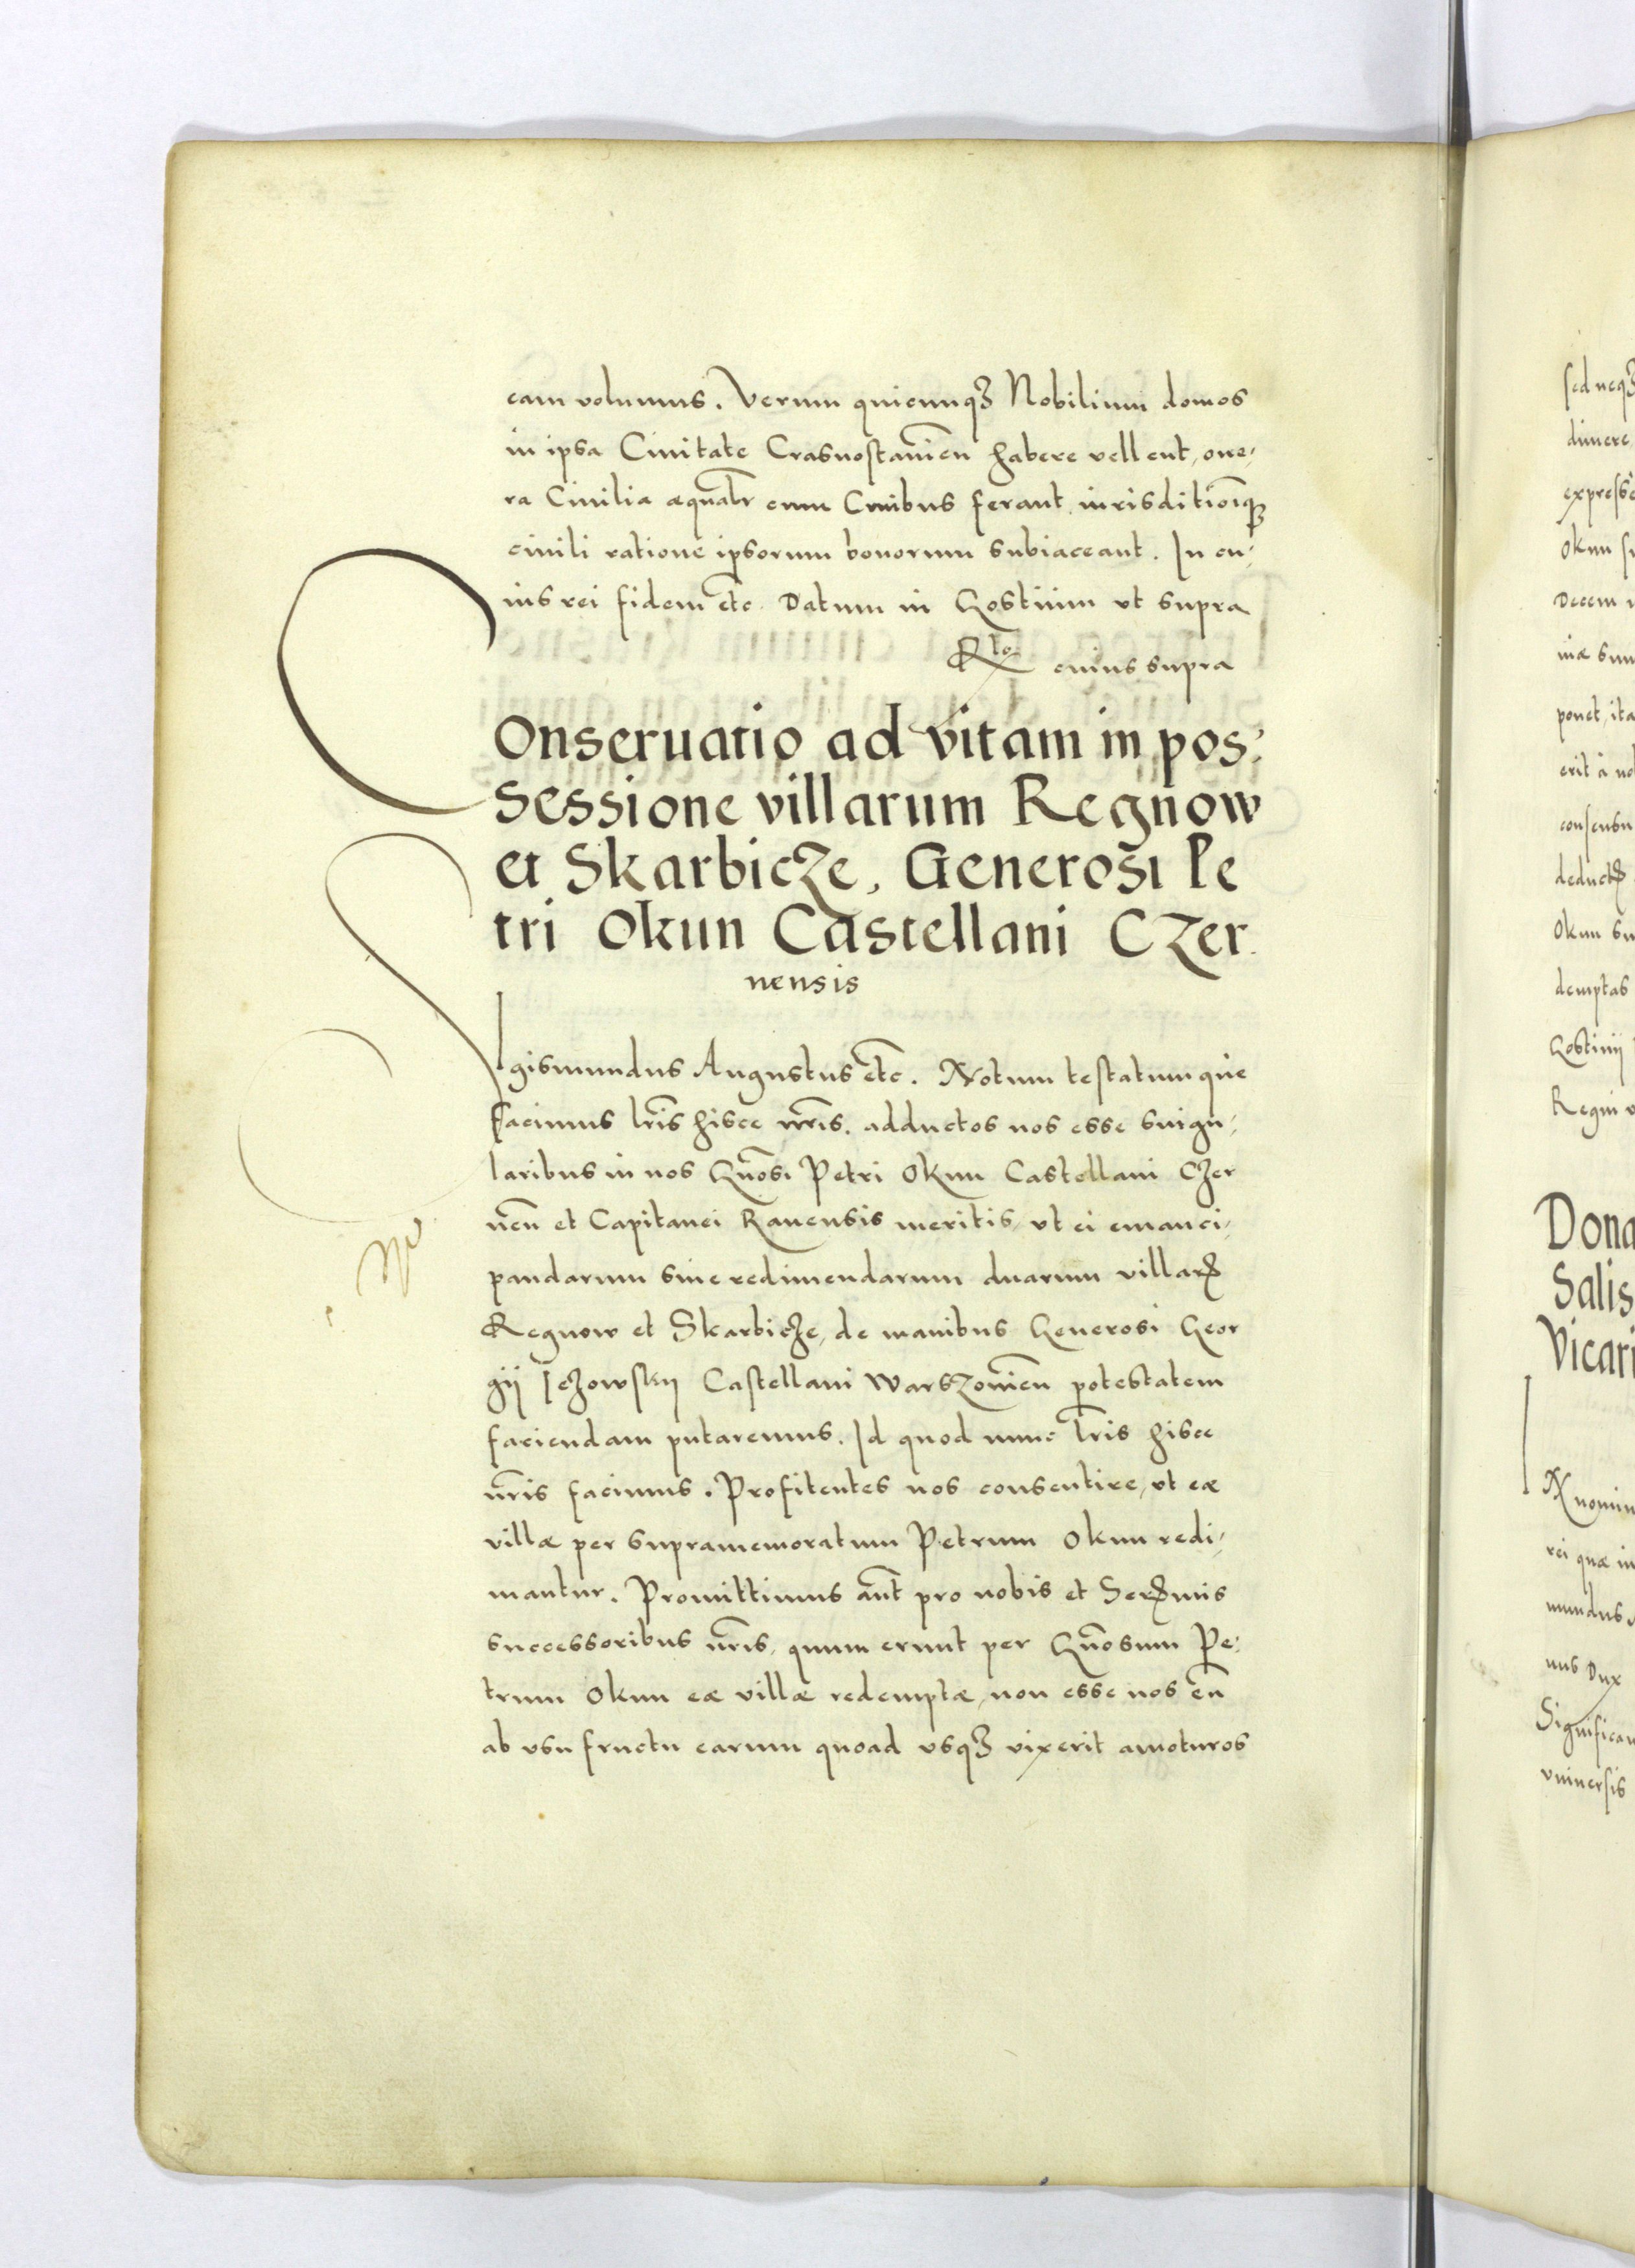 eam volumus. Verum quicunq3 Nobilium domos
in ipsa Ciuitate Crasnostauien̄ habere vellent, one-
ra Ciuilia æqualr̄ cum Ciuibus ferant, iurisditioīq3
ciuili ratione ipsorum bonorum subiaceant. In cu-
ius rei fidem etc̄. Datum in Gostinin vt supra
Rto cuius supra
Conseruatio ad vitam in pos-
sessione villarum Regnow
et Skarbicze, Generosi Pe
tri Okun Castellani Czer
nensis
Sigismundus Augustus etc̄. Notum testatumque
facimus lr̄is hisce nr̄is. adductos nos esse singu-
laribus in nos Gn̄osi Petri Okun Castellani Czer
nen̄ et Capitanei Rauensis meritis, vt ei emanci-
pandarum siue redimendarum duarum villaꝝ
Regnow et Skarbicze, de manibus Generosi Geor
gij Jezowskij Castellani Warszouien̄ potestatem
faciendam putaremus. Id quod nunc lr̄is hisce
nr̄is facimus. Profitentes nos consentire, vt eæ
villæ per supramemoratum Petrum Okun redi-
mantur. Promittimus aūt pro nobis et Serꝝmis
successoribus nr̄is, quum erunt per Gn̄osum Pe-
trum Okun eæ villæ redemptæ, non esse nos eū
ab vsu fructu earum quoad vsq3 vixerit amoturos
sed neq3
dimere
expresse
Okun
Decem
ponet, ita
erit à
consensu
deductꝝ
Okun
demptas
Gostinij
Regni
Dona
Salis
Vicari
rei quæ
mundus
nus Dux
Significam
vniuersis